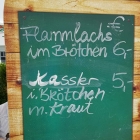 €
Flammlachs
im Brötchen 6,-
Kassler 5,-
i. Brötchen
m. Kraut